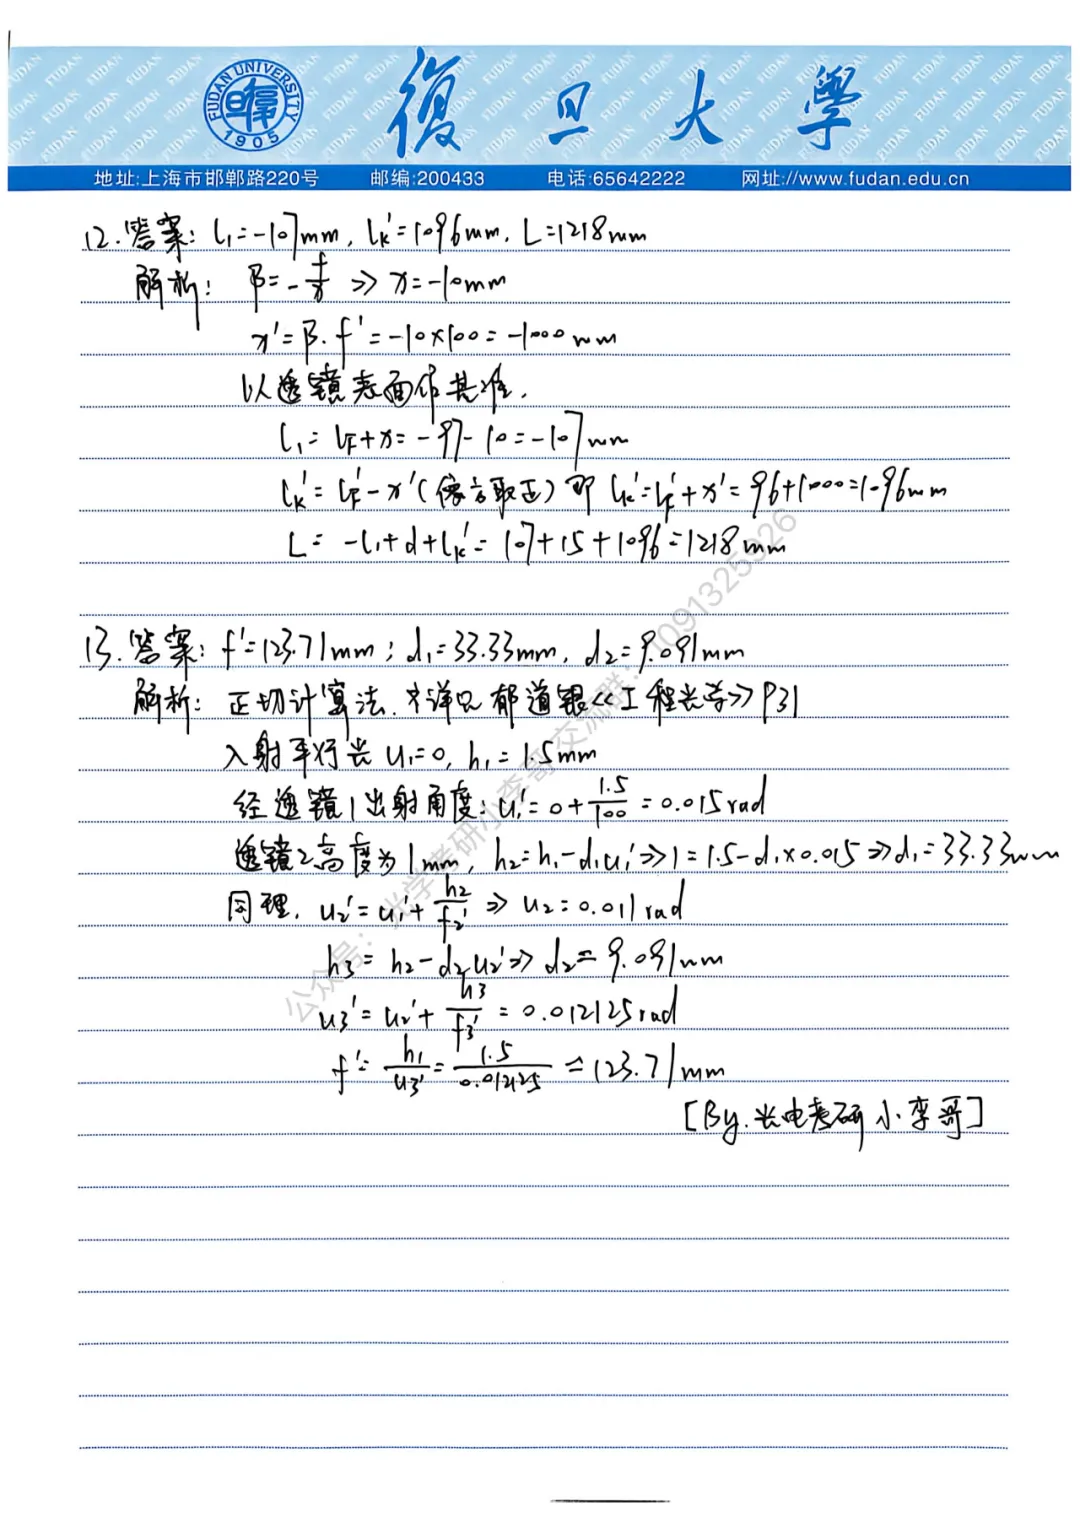 FUDAN UNIVERSITY 1905
復旦大學
地址:上海市邯郸路220号 邮编:200433 电话:65642222 网址://www.fudan.edu.cn
12.答案: l₁=-107mm, lk'=1096mm, L=1218mm
解析: β=-f/x ⇒ x=-10mm
x'=β·f'=-10×100=-1000mm
以透镜表面作基准,
l₁=lF+x=-97-10=-107mm
lk'=lF'-x'(像方取正)即 lk'=lF'+x'=96+1000=1096mm
L=-l₁+d+lk'=107+15+1096=1218mm
13.答案: f'=123.71mm; d₁=33.33mm, d₂=9.091mm
解析: 正切计算法, 详见郁道银《工程光学》P31
入射平行光 u₁=0, h₁=1.5mm
经透镜1出射角度: u₁'=0+1.5/100=0.015rad
透镜2高度为1mm, h₂=h₁-d₁u₁'⇒1=1.5-d₁×0.015⇒d₁=33.33mm
同理, u₂'=u₁'+h₂/f₂' ⇒ u₂=0.011rad
h₃=h₂-d₂u₂'⇒d₂=9.091mm
u₃'=u₂'+h₃/f₃'=0.012125rad
f'=h₁/u₃'=1.5/0.012125=123.71mm
[By.光电考研小李哥]
公众号:光学考研小李哥 交流群:1091325926